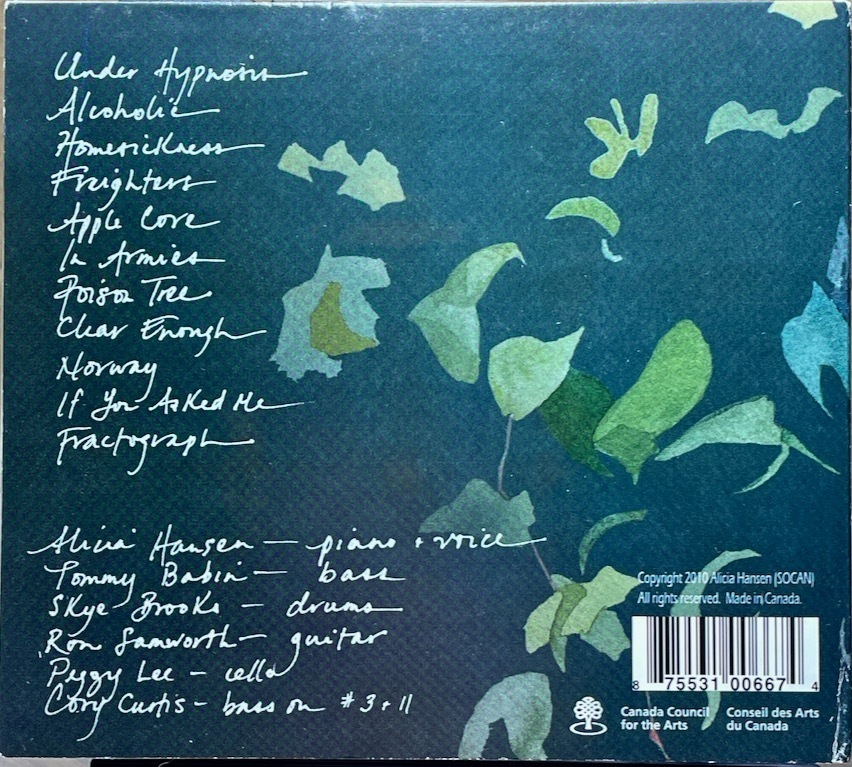 Under Hypnosis
Alcoholic
Homesickness
Freighters
Apple Core
In Armies
Poison Tree
Clear Enough
Norway
If You Asked Me
Fractograph
Alicia Hansen — piano + voice
Tommy Babin — bass
Skye Brooks — drums
Ron Samworth — guitar
Peggy Lee — cello
Cory Curtis - bass on #3 + 11
Copyright 2010 Alicia Hansen (SOCAN)
All rights reserved. Made in Canada.
8 75531 00667 4
Canada Council for the Arts
Conseil des Arts du Canada